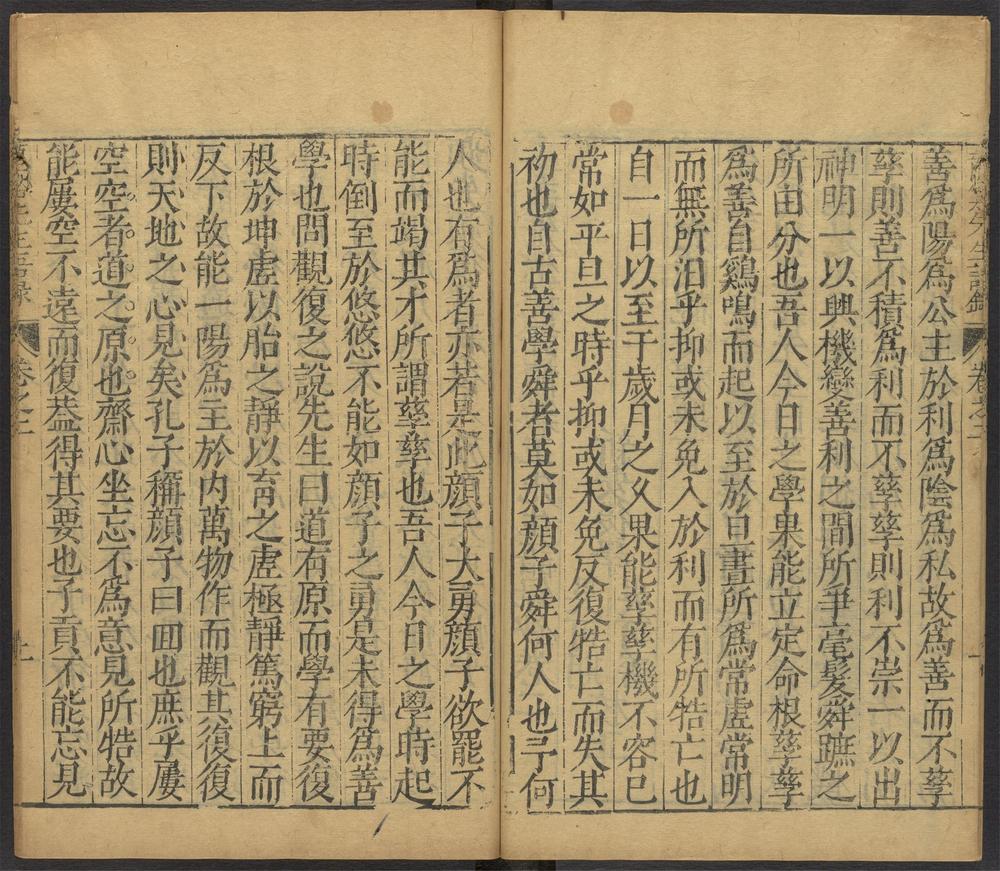 善爲陽爲公主於利爲陰爲私故爲善而不孳
孳則善不積爲利而不孳孳則利不崇一以出
神明一以興機變善利之間所爭毫髮舜蹠之
所由分也吾人今日之學果能立定命根孳孳
爲善自鷄鳴而起以至於旦晝所爲常虛常明
而無所汨乎抑或未免入於利而有所牿亡也
自一日以至于歲月之久果能孳孳機不容已
常如平旦之時乎抑或未免反復牿亡而失其
初也自古善學舜者莫如顏子舜何人也予何
人也有爲者亦若是此顏子大勇顏子欲罷不
能而竭其才所謂孳孳也吾人今日之學時起
時倒至於悠悠不能如顏子之勇是未得爲善
學也問觀復之說先生曰道有原而學有要復
根於坤虛以胎之靜以育之虛極靜篤窮上而
反下故能一陽爲主於内萬物作而觀其復復
則天地之心見矣孔子稱顏子曰回也庶乎屢
空空者道之原也齋心坐忘不爲意見所牿故
能屢空不遠而復葢得其要也子貢不能忘見
先生語錄 卷之二